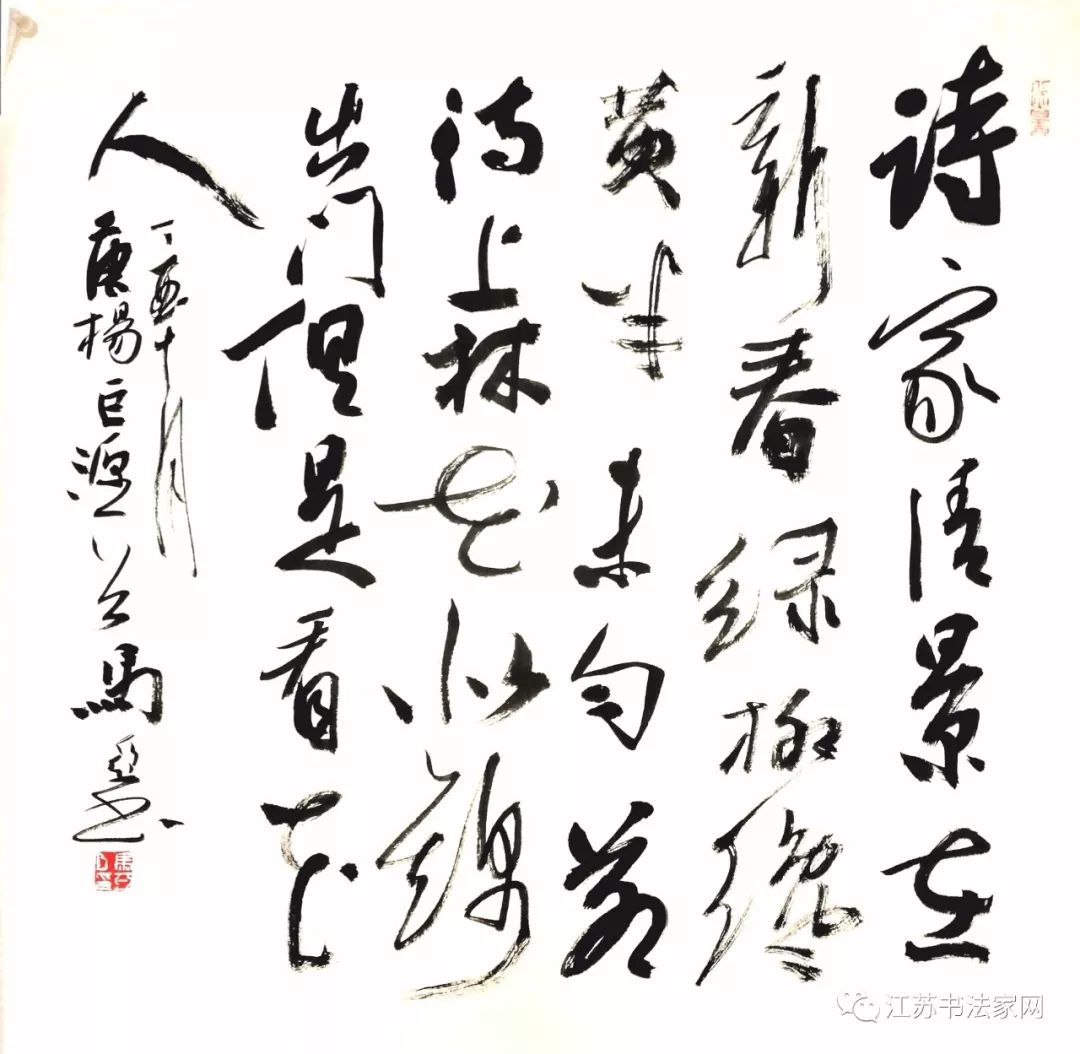 诗家清景在
新春绿柳才
黄半未匀若
待上林花似锦
出门俱是看花
人
丁酉十月
唐杨巨源
马
江苏书法家网